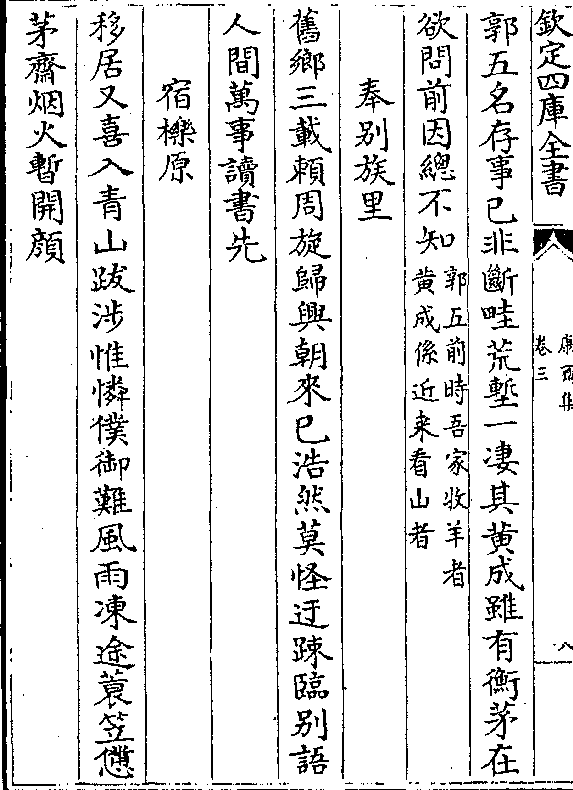 欽定四庫全書
卷三
八
郭五名存事已非斷畦荒塹一凄其黄成雖有衡茅在
欲問前因總不知
郭五前時吾家收羊者
黄成係近来看山者
奉别族里
舊鄉三載頼周旋歸興朝來已浩然莫怪迂踈臨别語
人間萬事讀書先
宿櫟原
移居又喜入青山跋涉惟憐僕御難風雨凍途蓑笠憊
茅齋烟火暫開顔